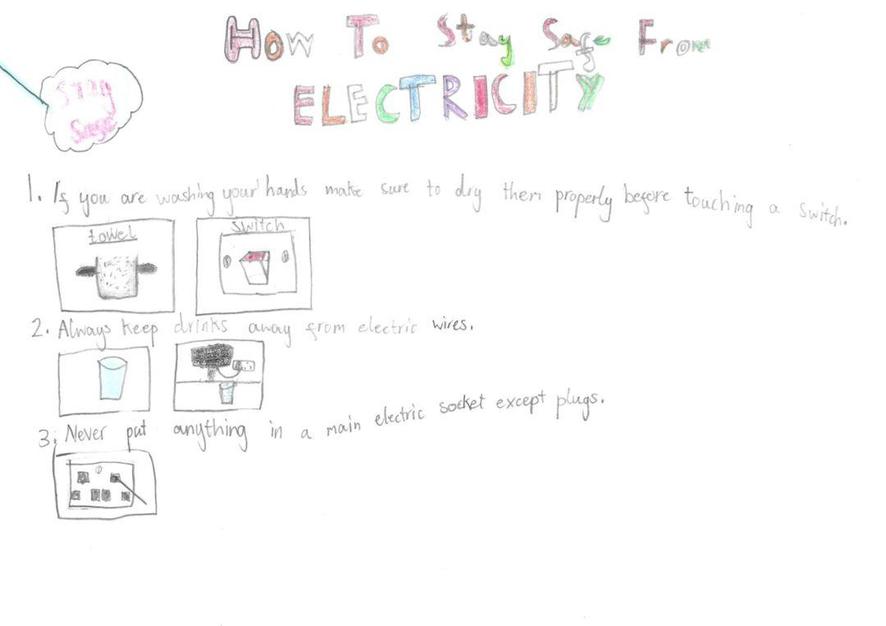 How To Stay Safe From
ELECTRICITY
Stay
Safe
1. If you are washing your hands make sure to dry them properly before touching a switch.
towel
switch
2. Always keep drinks away from electric wires.
3. Never put anything in a main electric socket except plugs.